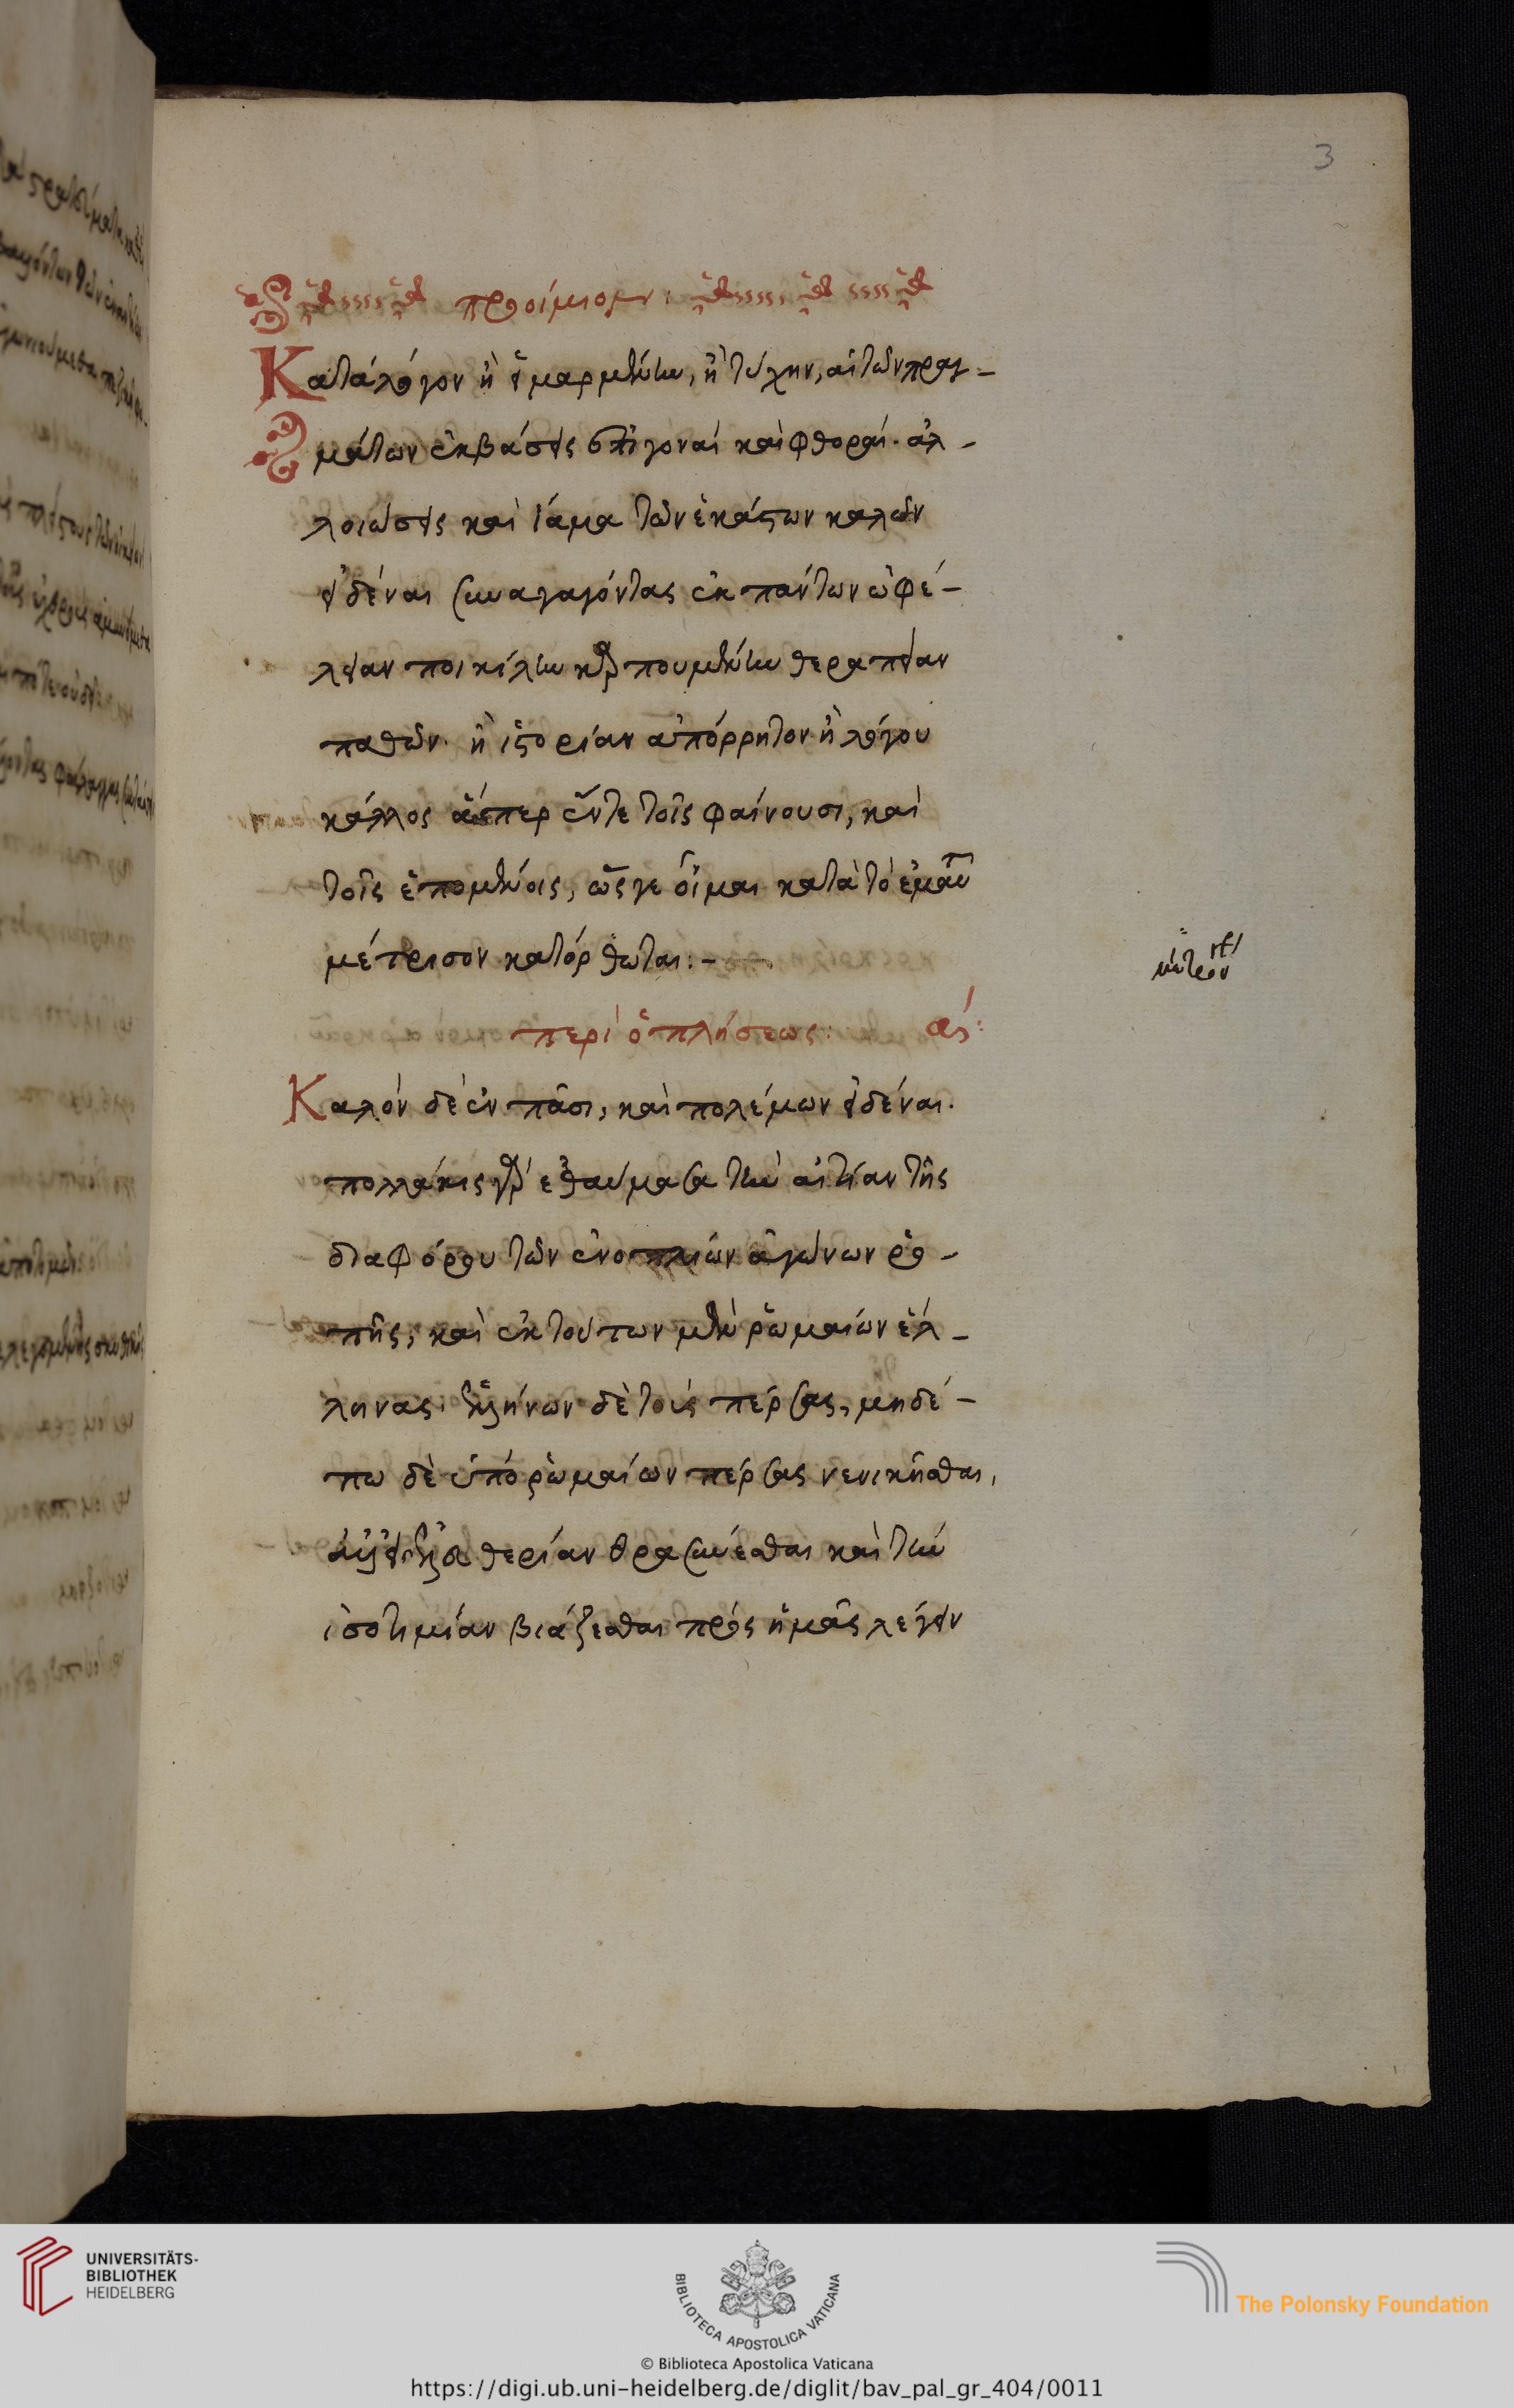 3
προοίμιον:
Κατὰ λόγον ἢ εἱμαρμένην, ἢ τύχην, αἱ τῶν πραγ-
μάτων ἐκβάσεις ἐπὶ γοναὶ καὶ φθοραί· ἀλ-
λοιώσεις καὶ ἰάμα τῶν ἑκάστων καλῶν
εἰδέναι συναγαγόντας ἐκ πάντων ὠφέ-
λειαν ποικίλην κατὰ που μὲν θεραπείαν
παθῶν· ἢ ἱστορίαν ἀπόρρητον ἢ λόγου
κάλλος ἅπερ ἔν τε τοῖς φαίνουσι, καὶ
τοῖς ἑπομένοις, ὥς γε οἶμαι κατὰ τὸ ἐμαυτοῦ
μέτρισον κατόρθωται:-
μέτρον
περὶ ὁπλήσεως: α:
Καλὸν δὲ ἐν πᾶσι, καὶ πολέμων εἰδέναι.
πολλάκις γὰρ ἐθαύμασα τὴν αἰτίαν τῆς
διαφόρου τῶν ἐνοπλιών ἀγώνων ῥο-
πῆς, καὶ ἐκ τούτων μὲν ῥωμαίων ἑλ-
ληνας· ἑλλήνων δὲ τοὺς πέρσας, μηδέ-
πω δὲ ὑπὸ ῥωμαίων πέρσας νενικῆσθαι,
θρασύνεσθαι καὶ τὴν
ἰσοτιμίαν βιάζεσθαι πρὸς ἡμᾶς λέγειν
UNIVERSITÄTS-
BIBLIOTHEK
HEIDELBERG
BIBLIOTECA APOSTOLICA VATICANA
The Polonsky Foundation
© Biblioteca Apostolica Vaticana
https://digi.ub.uni-heidelberg.de/diglit/bav_pal_gr_404/0011